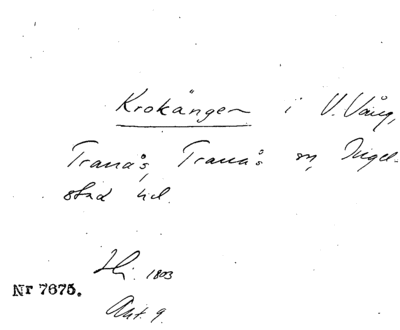 Krokången i V. Vång,
Tranås, Tranås sn, Ingel-
stad hd.
1803
Nr 7675.
Akt. 9.